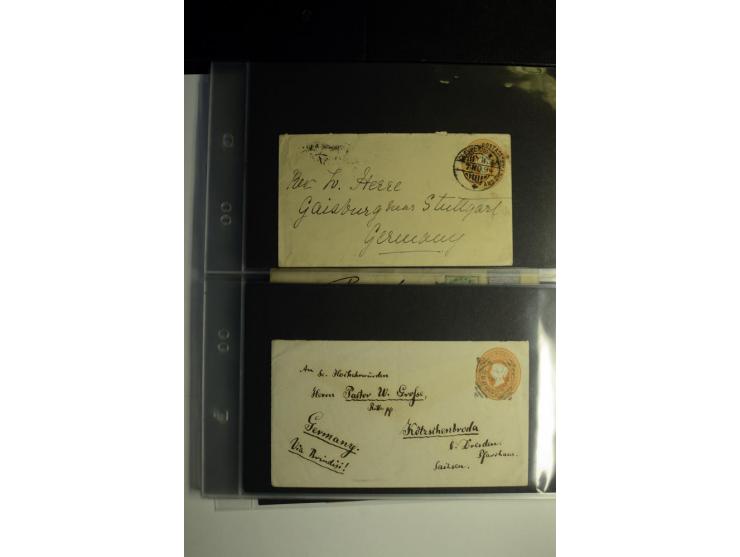 Rev. W. Herre
Gaisburg near Stuttgart
Germany
An Sr. Hochehrwürden
Herrn Pastor W. Grosse,
Ritter pp
Germany.
Kötzschenbroda
Via Brindisi!
b. Dresden.
Pfarrhaus.
Sachsen.